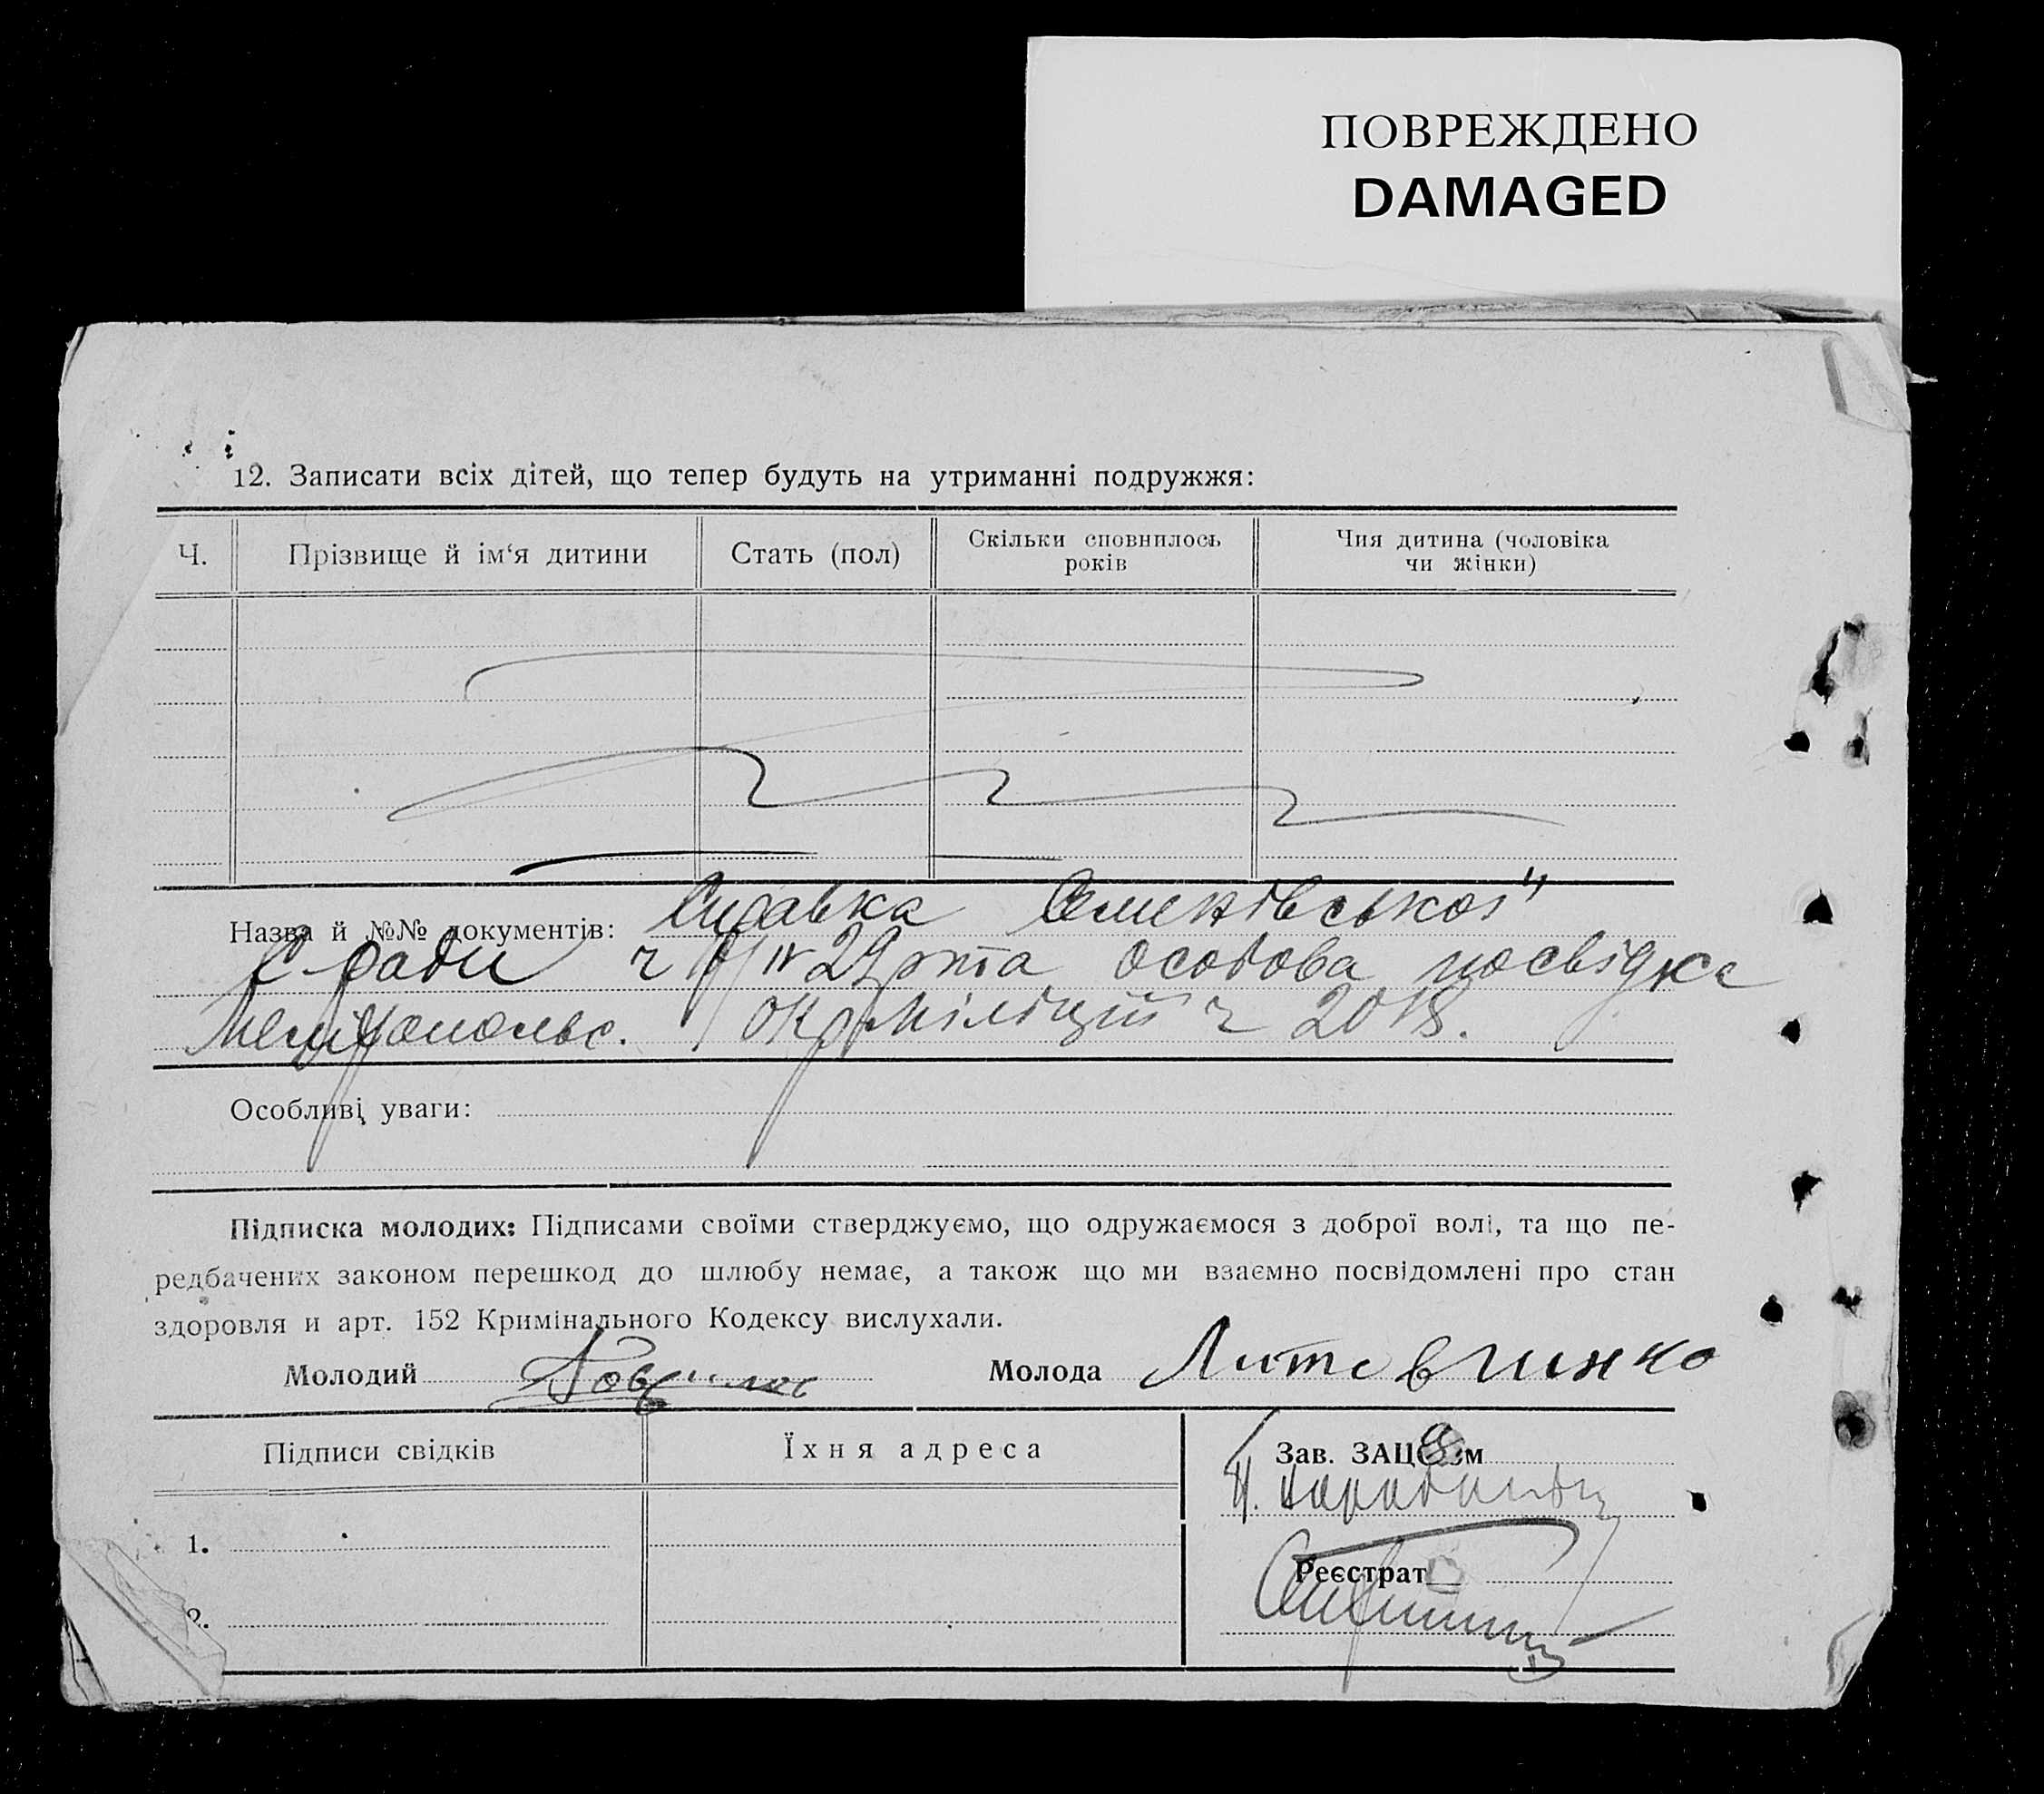 ПОВРЕЖДЕНО
DAMAGED
12. Записати всіх дітей, що тепер будуть на утриманні подружжя:
Ч.
Прізвище й ім‘я дитини
Стать (пол)
Скільки сповнилось
років
Чия дитина (чоловіка
чи жінки)
Назва й №№ документів: Справка Семенівської
С ради особова посвідка
Мелітопольс. окр міліції ч 2018.
Особливі уваги:
Підписка молодих: Підписами своїми стверджуємо, що одружаємося з доброї волі, та що пе-
редбачених законом перешкод до шлюбу немає, а також що ми взаємно посвідомлені про стан
здоровля и арт. 152 Кримінального Кодексу вислухали.
Молодий
Молода Литовчинко
Підписи свідків
Їхня адреса
Зав. ЗАЦСом
1.
Реєстрат
2.